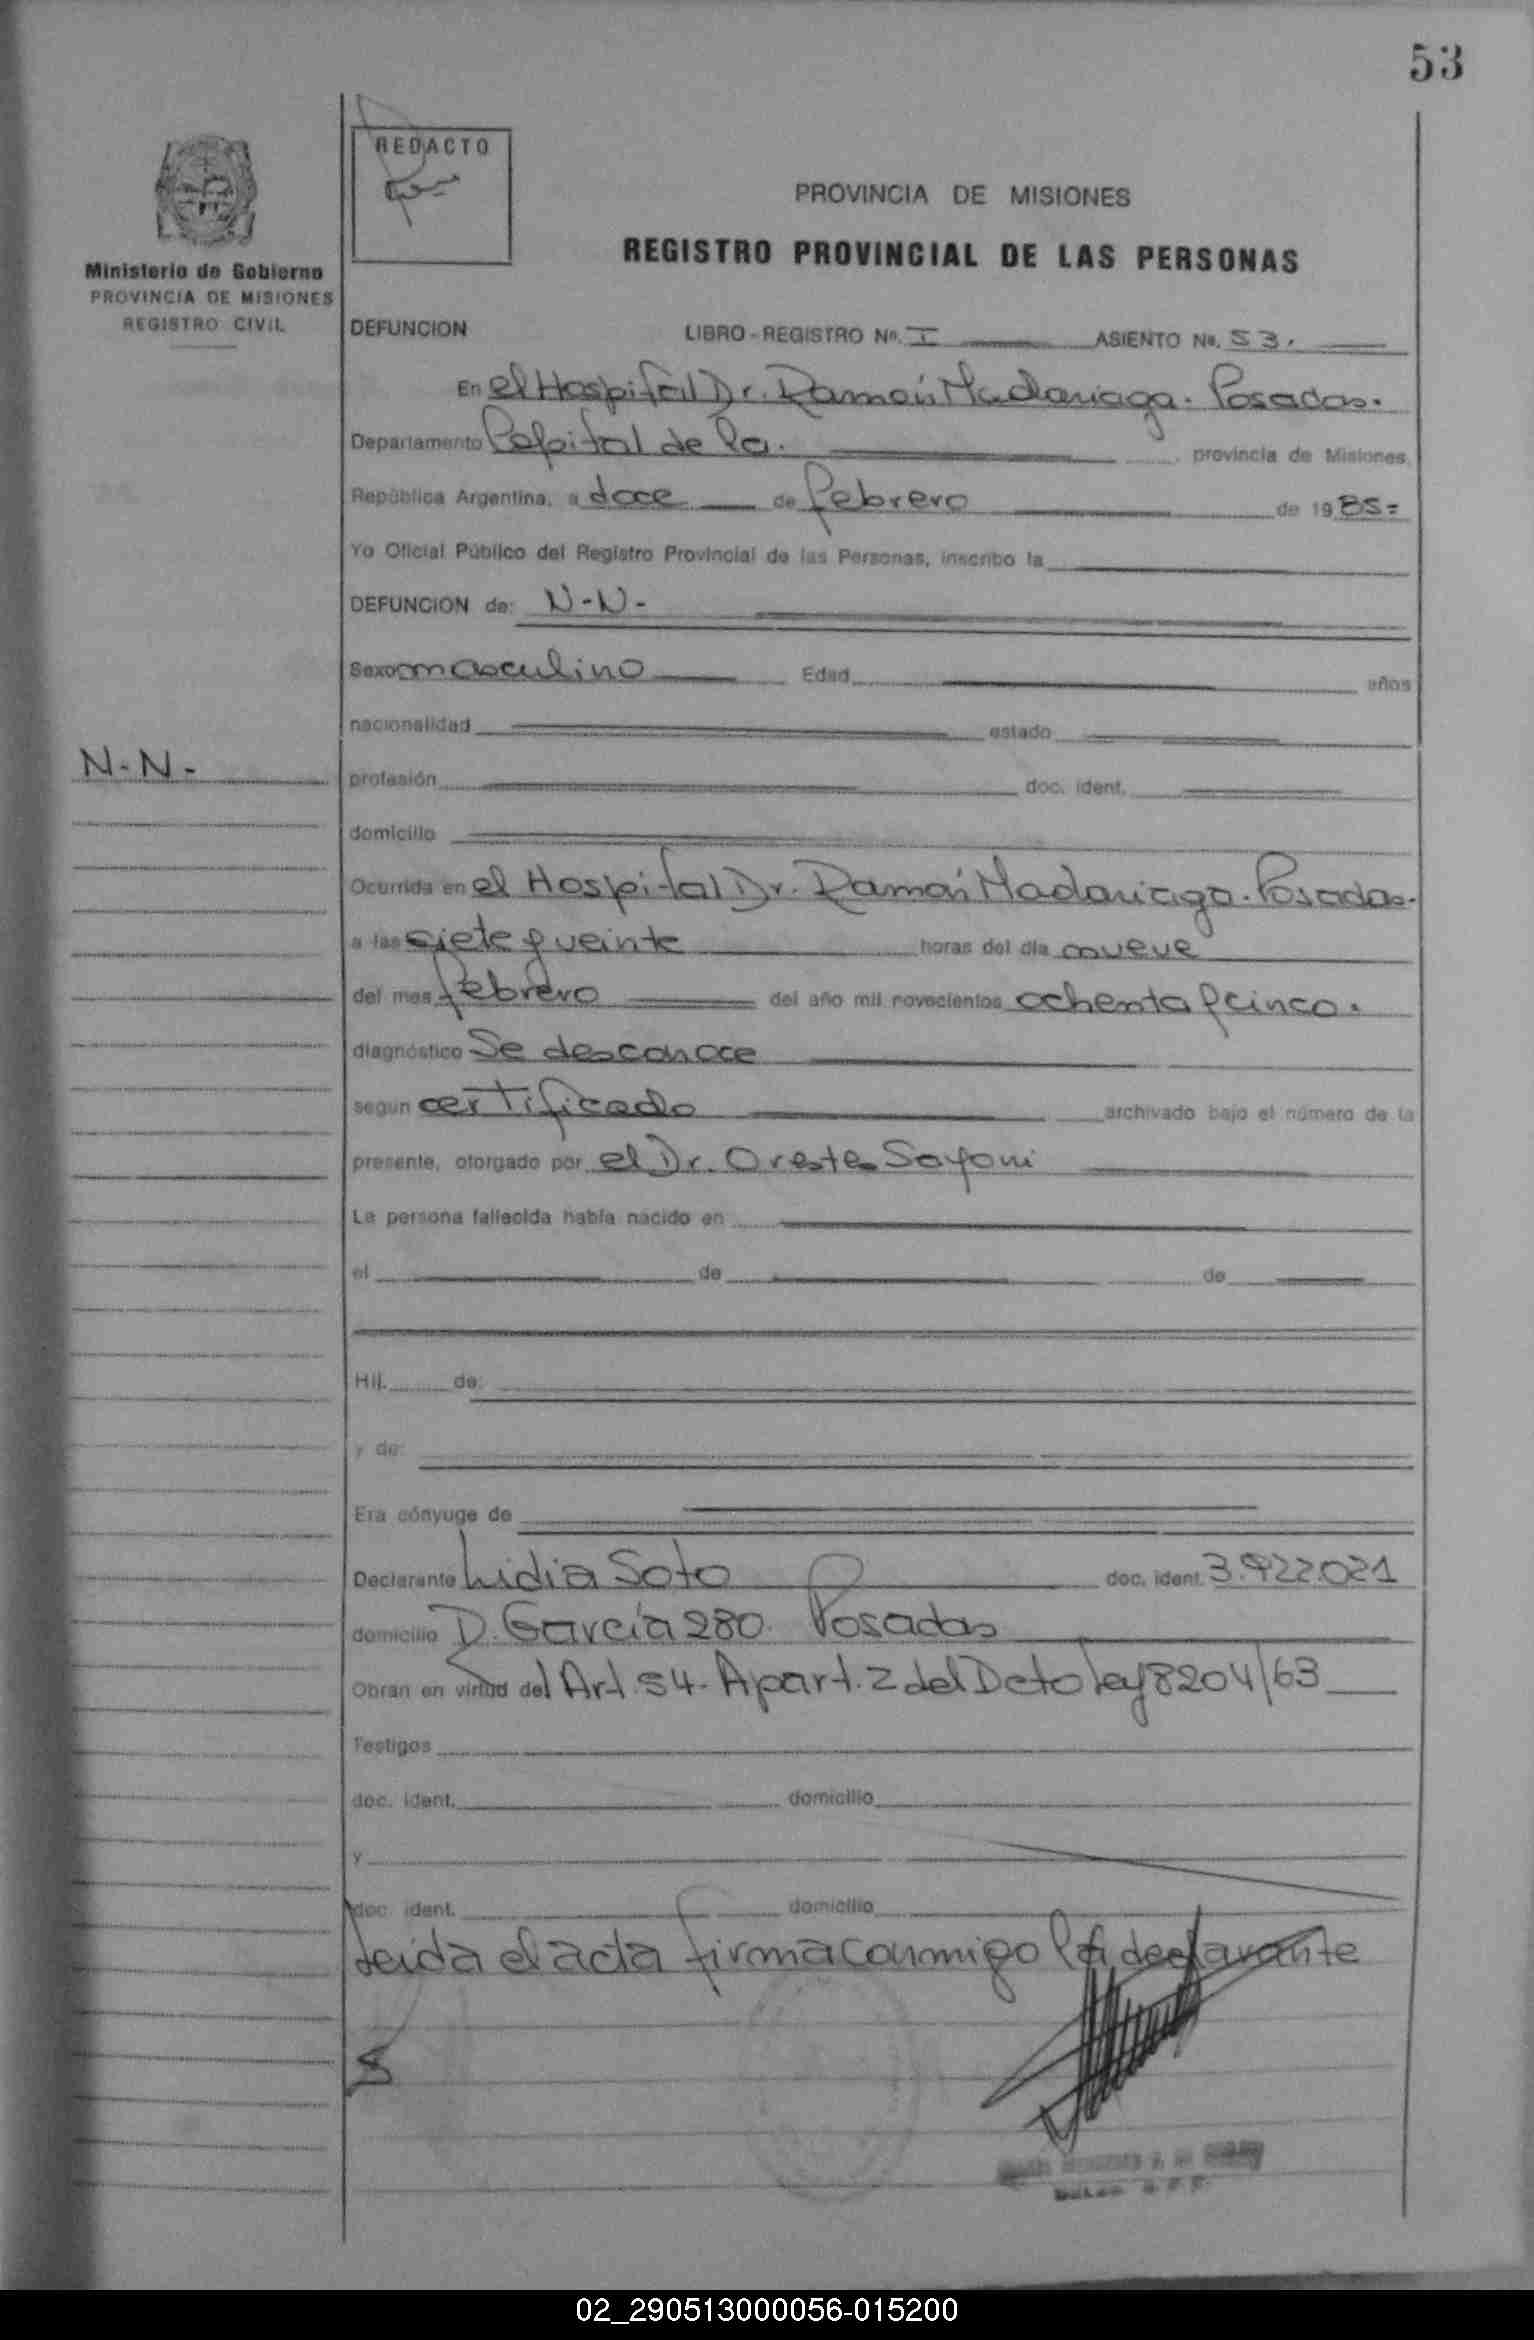 53
REDACTO
Ministerio de Gobierno
PROVINCIA DE MISIONES
REGISTRO CIVIL
PROVINCIA DE MISIONES
REGISTRO PROVINCIAL DE LAS PERSONAS
DEFUNCION LIBRO - REGISTRO Nº. I ASIENTO Nº. 53.
En el Hospital Dr. Ramón Madariaga. Posadas.
Departamento Capital de la. provincia de Misiones,
República Argentina, a doce de febrero de 1985=
Yo Oficial Público del Registro Provincial de las Personas, inscribo la
DEFUNCION de: N-N-
Sexo masculino Edad años
nacionalidad estado
N-N-
profesión doc. ident.
domicilio
Ocurrida en el Hospital Dr. Ramón Madariaga. Posadas.
a las siete y veinte horas del día nueve
del mes febrero del año mil novecientos ochenta y cinco.
diagnóstico Se desconoce
según certificado archivado bajo el número de la
presente, otorgado por el Dr. Orestes
La persona fallecida había nacido en
el de de
Hij. de:
y de:
Era cónyuge de
Declarante Lidia Soto doc. ident. 3.922.021
domicilio D. García 280. Posadas
Obran en virtud del Art. 54. Apart. 2 del Dcto ley 8204/63
Testigos
doc. ident. domicilio
y
doc. ident. domicilio
Leida el acta firma conmigo la declarante
02_290513000056-015200